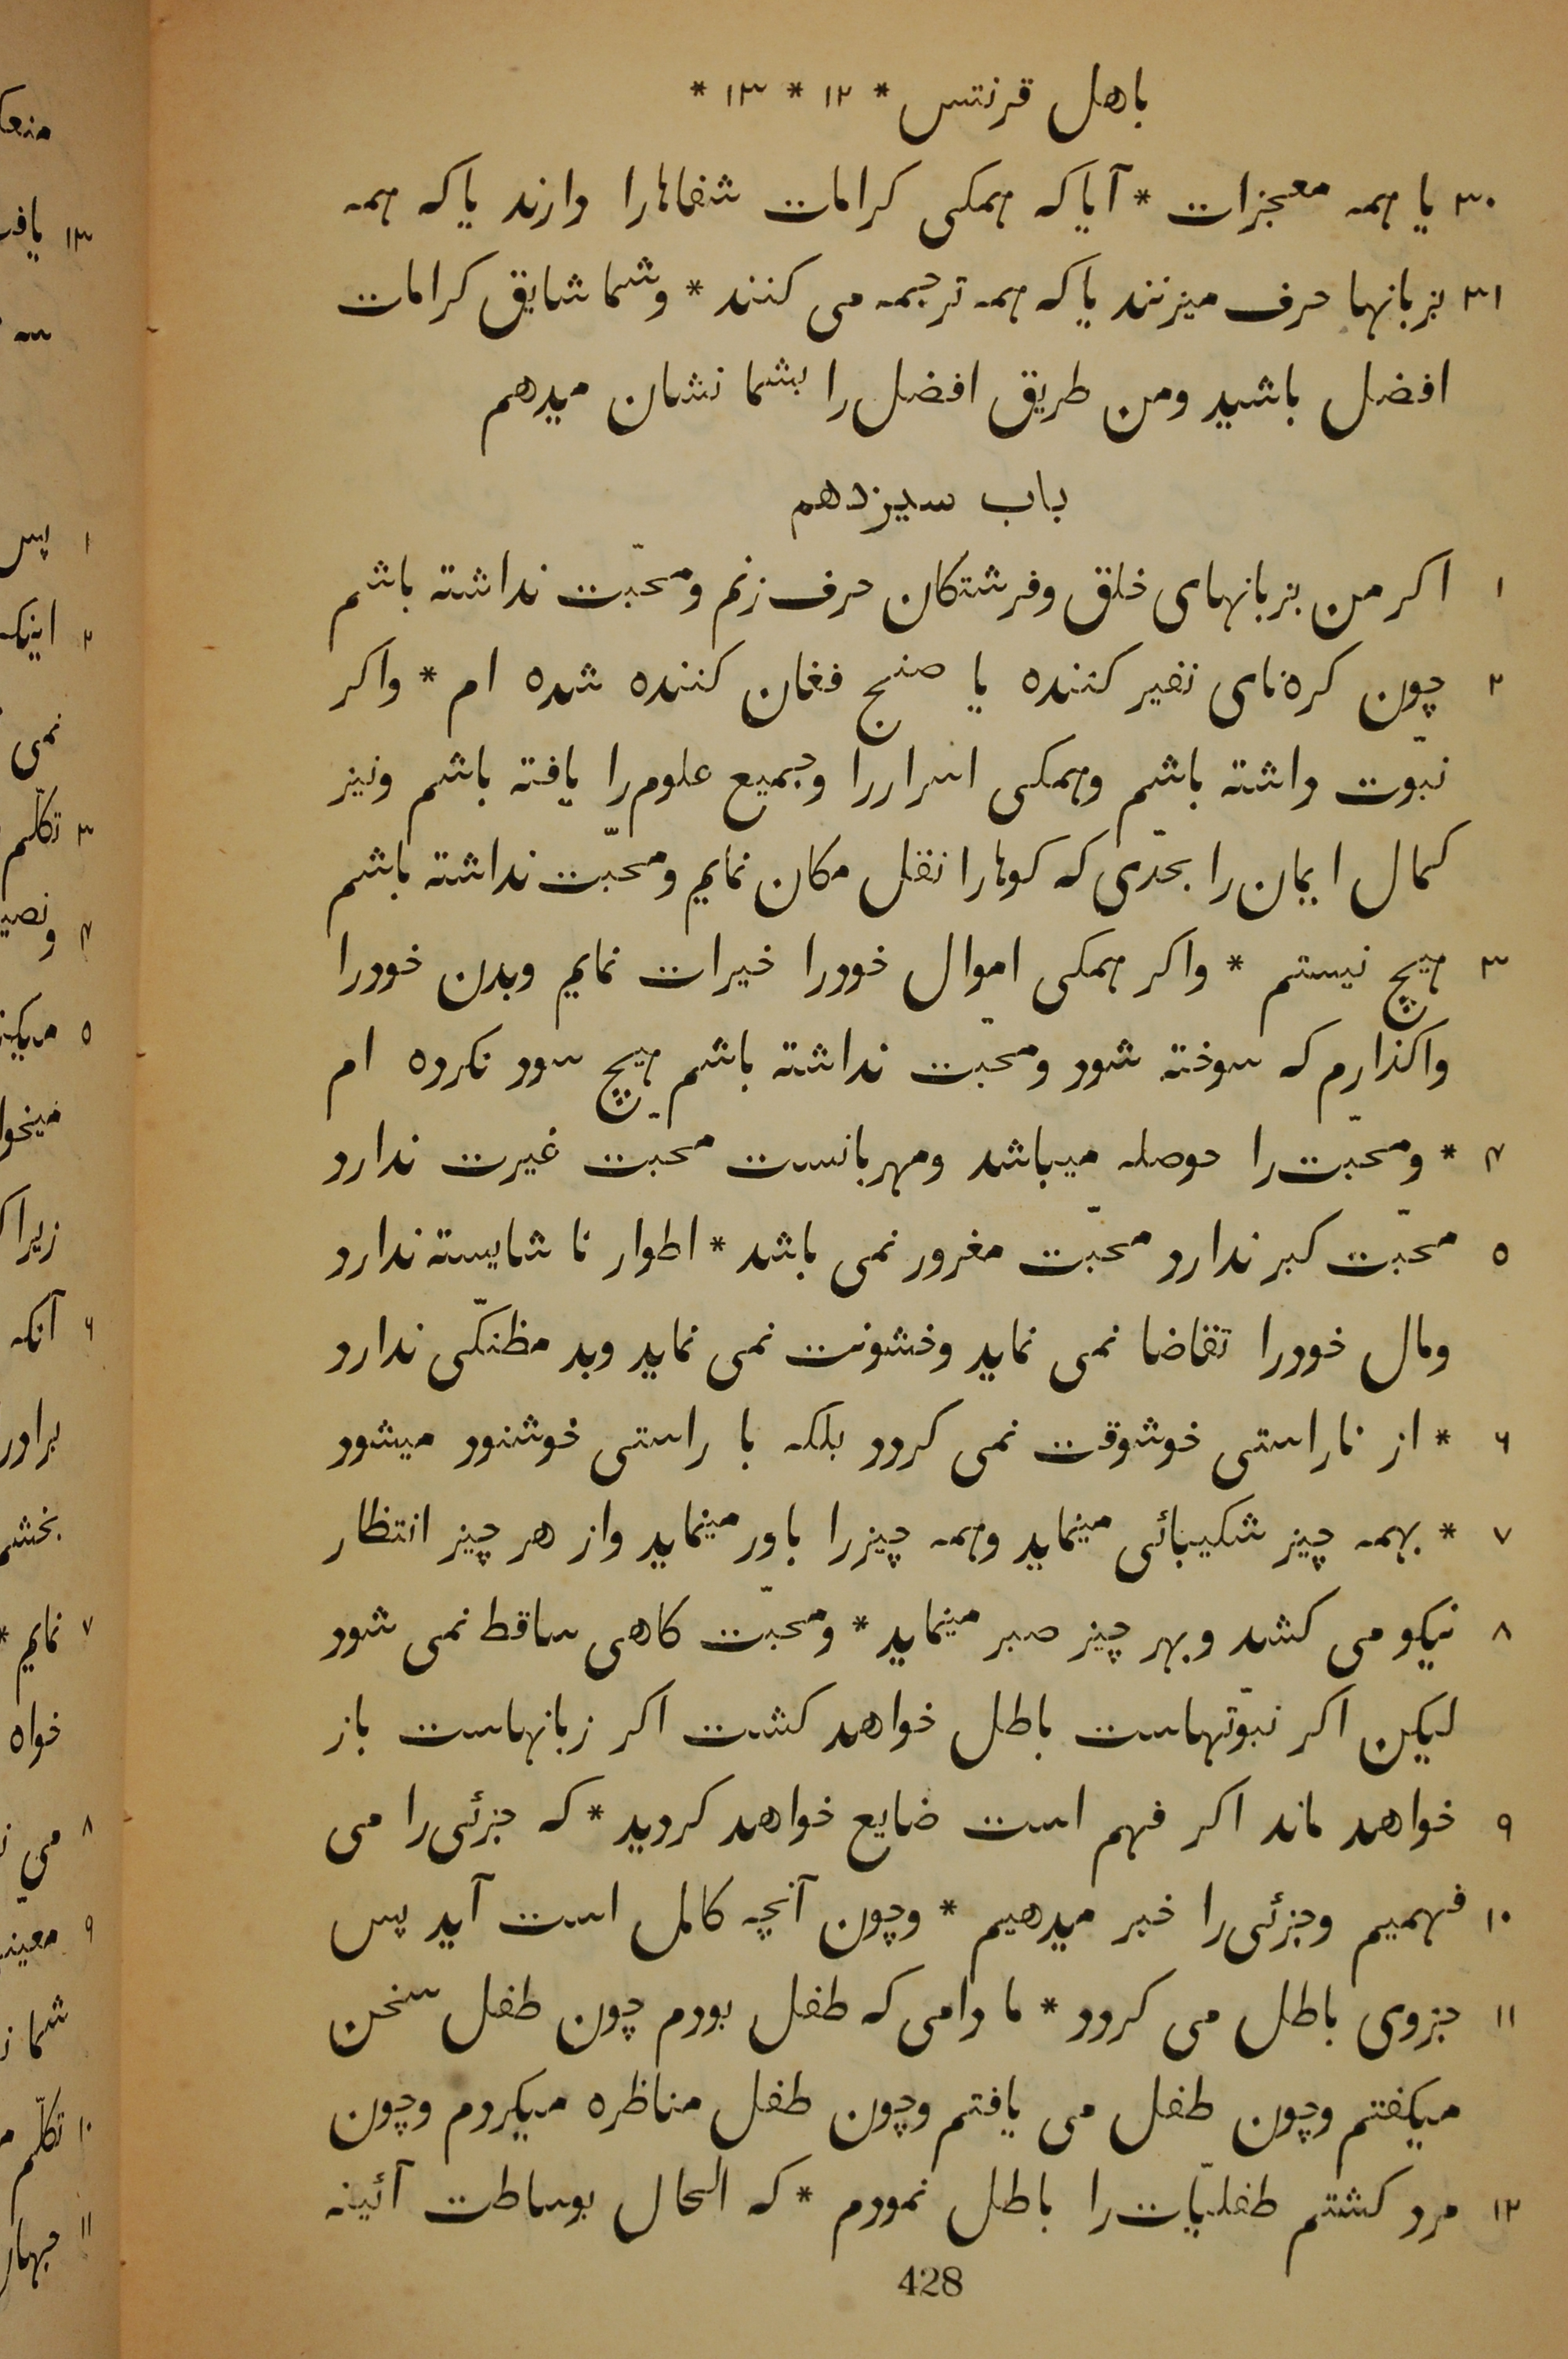 باهل قرنتس * ۱۲ * ۱۳ *
۳۰ یا همه معجزات * آیا که همکی کرامات شفاهارا دارند یا که همه
۳۱ بزبانها حرف میزنند یا که همه ترجمه می کنند * وشما شایق کرامات
افضل باشید ومن طریق افضل را بشما نشان میدهم
باب سیزدهم
۱ اکر من بزبانهای خلق وفرشتکان حرف زنم ومحبّت نداشته باشم
۲ چون کره‌نای نفیر کننده یا صنج فغان کننده شده ام * واکر
نبوّت داشته باشم وهمکی اسراررا وجمیع علوم را یافته باشم ونیز
کمال ایمان را بحدّی که کوهارا نقل مکان نمایم ومحبّت نداشته باشم
۳ هیچ نیستم * واکر همکی اموال خودرا خیرات نمایم وبدن خودرا
واکذارم که سوخته شود ومحبّت نداشته باشم هیچ سود نکرده ام
۴ * ومحبّت را حوصله میباشد ومهربانست محبّت غیرت ندارد
۵ محبّت کبر ندارد محبّت مغرور نمی باشد * اطوار نا شایسته ندارد
ومال خودرا تقاضا نمی نماید وخشونت نمی نماید وبد مظنکّی ندارد
۶ * از ناراستی خوشوقت نمی کردد بلکه با راستی خوشنود میشود
۷ * بهمه چیز شکیبائی مینماید وهمه چیزرا باور مینماید واز هر چیز انتظار
۸ نیکو می کشد وبهر چیز صبر مینماید * ومحبّت کاهی ساقط نمی شود
لیکن اکر نبوّتهاست باطل خواهد کشت اکر زبانهاست باز
۹ خواهد ماند اکر فهم است ضایع خواهد کردید * که جزئی را می
۱۰ فهمیم وجزئی را خبر میدهیم * وچون آنچه کامل است آید پس
۱۱ جزوی باطل می کردد * ما دامی که طفل بودم چون طفل سخن
میکفتم وچون طفل می یافتم وچون طفل مناظره میکردم وچون
۱۲ مرد کشتم طفلیّات را باطل نمودم * که الحال بوساطت آئینه
428